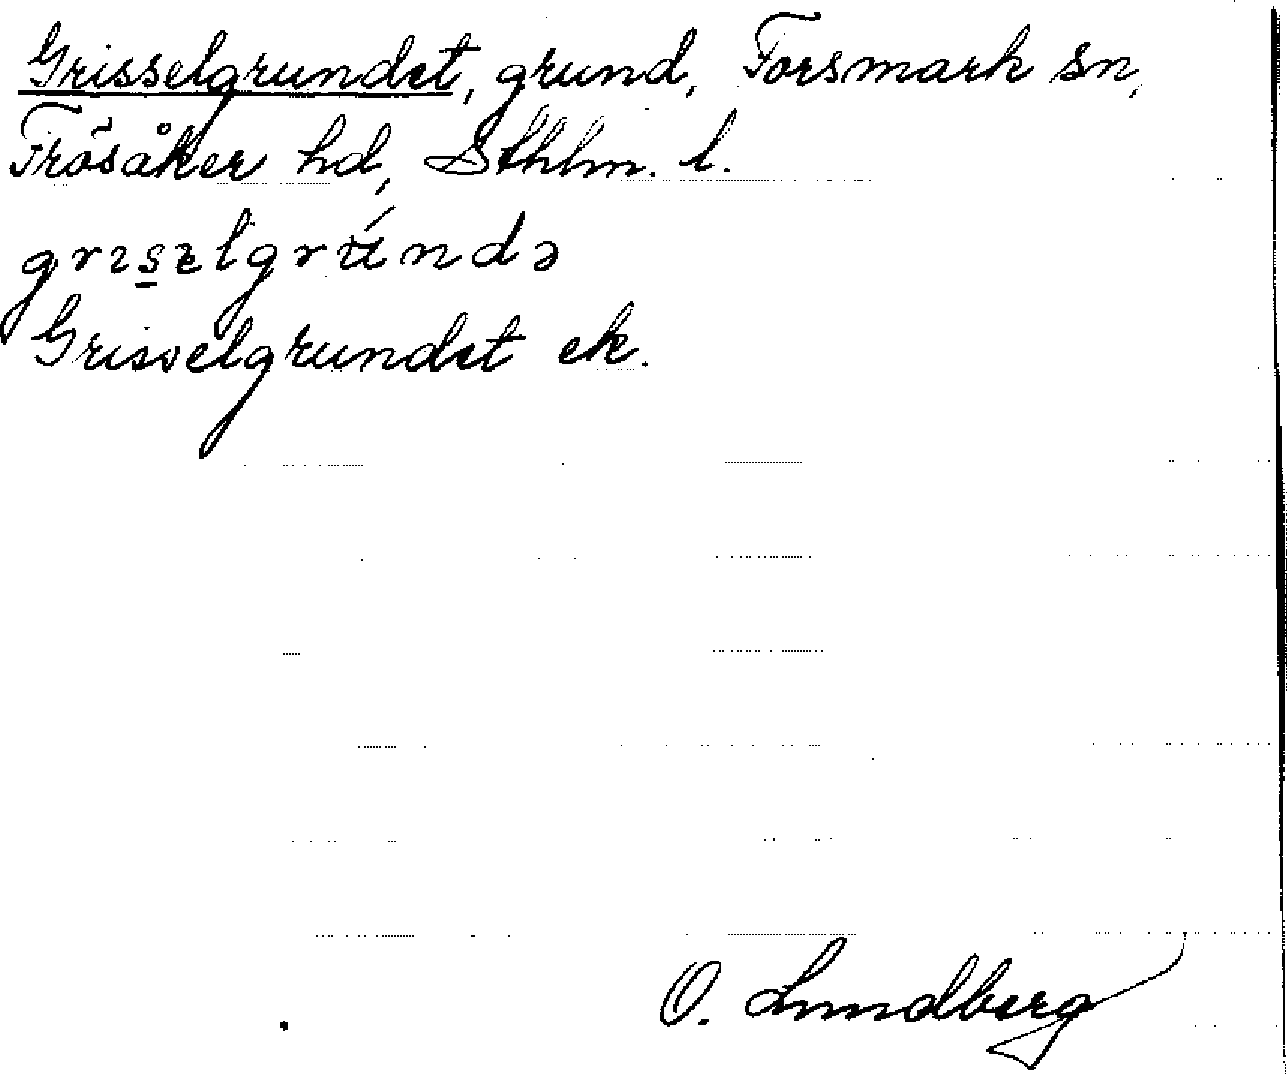 Grisselgrundet, grund, Forsmark sn,
Frösåker hd, Sthlm. l.
grɪs̲ɛlgrʉ́ndə
Grisselgrundet ek.
O. Lundberg